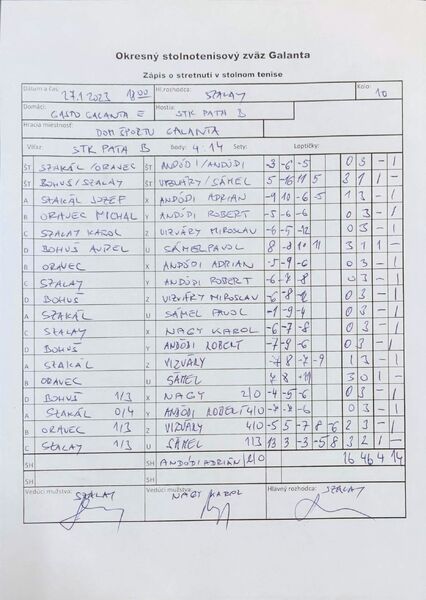 Okresný stolnotenisový zväz Galanta
Zápis o stretnutí v stolnom tenise
Dátum a čas: 27.1.2023 18 00 Hl.rozhodca: SZALAY Kolo: 10
Domáci: GASTO GALANTA E Hostia: STK PATA B
Hracia miestnosť: DOM ŠPORTU GALANTA
Víťaz: STK PATA B body: 4:14 Sety: Loptičky:
ŠT SZAKÁL/ORAVEC ŠT ANDÓDI/ANDÓDI -3 -6 -5 0 3 - 1
ŠT BOHUŠ/SZALAY ŠT VIZVÁRY/SÁMEL 5 -16 11 5 3 1 1 -
A SZAKÁL JOZEF X ANDÓDI ADRIAN -9 10 -6 -5 1 3 - 1
B ORAVEC MICHAL Y ANDÓDI ROBERT -5 -6 -6 0 3 - 1
C SZALAY KAROL Z VIZVÁRY MIROSLAV -6 -5 -12 0 3 - 1
D BOHUŠ AUREL U SÁMEL PAVOL 8 -8 10 11 3 1 1 -
B ORAVEC X ANDÓDI ADRIAN -5 -9 -6 0 3 - 1
C SZALAY Y ANDÓDI ROBERT -6 -7 -8 0 3 - 1
D BOHUŠ Z VIZVÁRY MIROSLAV -6 -8 -12 0 3 - 1
A SZAKÁL U SÁMEL PAVOL -1 -9 -4 0 3 - 1
C SZALAY X NAGY KAROL -6 -7 -8 0 3 - 1
D BOHUŠ Y ANDÓDI ROBERT -7 -9 -6 0 3 - 1
A SZAKÁL Z VIZVÁRY -7 8 -7 -9 1 3 - 1
B ORAVEC U SÁMEL 7 8 11 3 0 1 -
D BOHUŠ 1/3 X NAGY 2/0 -4 -5 -6 0 3 - 1
A SZAKÁL 0/4 Y ANDÓDI ROBERT 4/0 -7 -7 -6 0 3 - 1
B ORAVEC 1/3 Z VIZVÁRY 4/0 -5 5 -7 8 -6 2 3 - 1
C SZALAY 1/3 U SÁMEL 1/3 13 3 -3 -5 8 3 2 1 -
SH SH ANDÓDI ADRIÁN 2/0 16 46 4 14
SH SH
Vedúci mužstva: SZALAY Vedúci mužstva: NAGY KAROL Hlavný rozhodca: SZALAY